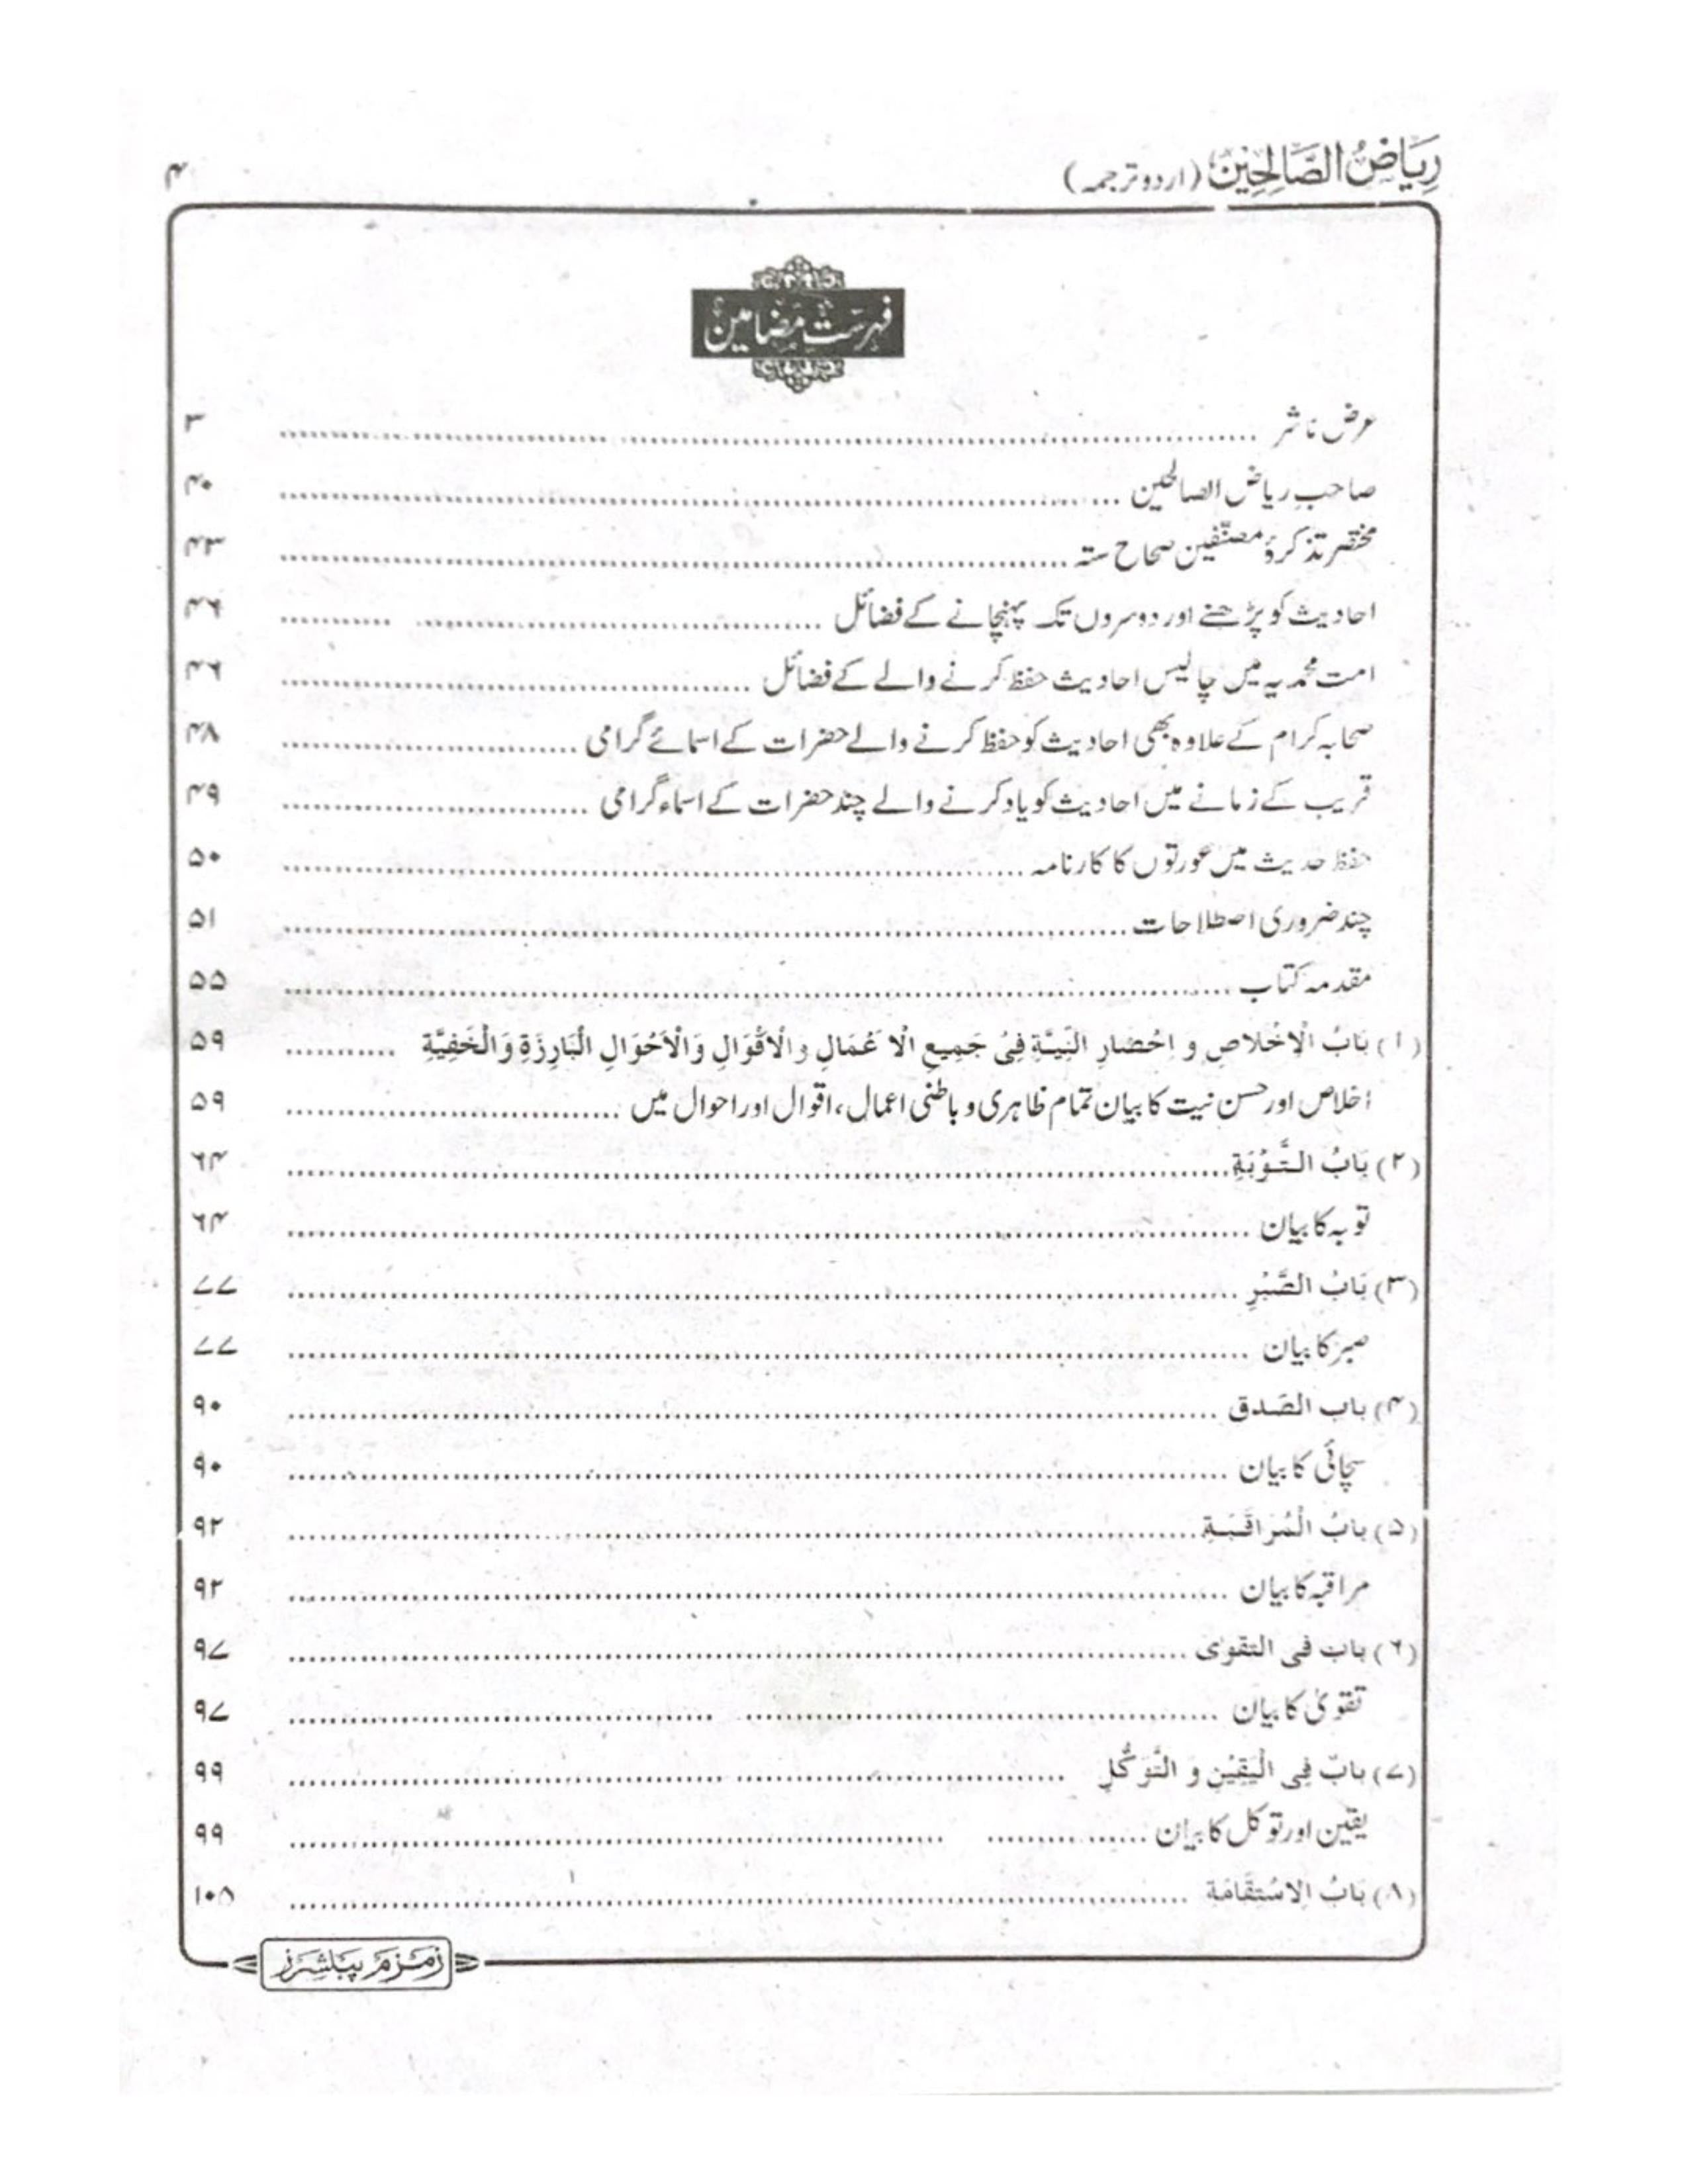 ریاض الصالحین (اردو ترجمہ) ۴
فہرست مضامین
عرض ناشر ........ ۳
صاحب ریاض الصالحین ........ ۴۰
مختصر تذکرۂ مصنّفین صحاح ستہ ........ ۴۳
احادیث کو پڑھنے اور دوسروں تک پہنچانے کے فضائل ........ ۴۶
امت محمدیہ میں چالیس احادیث حفظ کرنے والے کے فضائل ........ ۴۶
صحابہ کرام کے علاوہ بھی احادیث کو حفظ کرنے والے حضرات کے اسمائے گرامی ........ ۴۸
قریب کے زمانے میں احادیث کو یاد کرنے والے چند حضرات کے اسماء گرامی ........ ۴۹
حفظ حدیث میں عورتوں کا کارنامہ ........ ۵۰
چند ضروری اصطلاحات ........ ۵۱
مقدمہ کتاب ........ ۵۵
(۱) بَابُ الْاِخْلَاصِ و اِحْضَارِ النِّيَّةِ فِیْ جَمِيعِ الْاَعْمَالِ وَالْاَقْوَالِ وَالْاَحْوَالِ الْبَارِزَةِ وَالْخَفِيَّةِ ........ ۵۹
اخلاص اور حسن نیت کا بیان تمام ظاہری و باطنی اعمال، اقوال اور احوال میں ........ ۵۹
(۲) بَابُ التَّوْبَةِ ........ ۶۴
توبہ کا بیان ........ ۶۴
(۳) بَابُ الصَّبْرِ ........ ۷۷
صبر کا بیان ........ ۷۷
(۴) باب الصّدق ........ ۹۰
سچائی کا بیان ........ ۹۰
(۵) بابُ الْمُرَاقَبَةِ ........ ۹۲
مراقبہ کا بیان ........ ۹۲
(۶) باب فی التقوٰی ........ ۹۷
تقویٰ کا بیان ........ ۹۷
(۷) بابٌ فِی الْيَقِيْنِ وَ التَّوَكُّلِ ........ ۹۹
یقین اور توکل کا بیان ........ ۹۹
(۸) بَابُ الِاسْتِقَامَة ........ ۱۰۸
زمزم پبلشرز